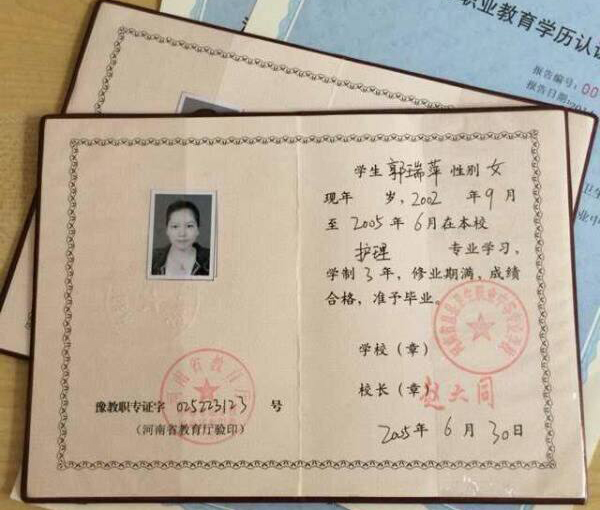 职业教育学历认证
报告编号:00
报告日期:
学生 郭瑞萍 性别 女
现年 岁,2002 年 9 月
至 2005 年 6 月在本校
护理 专业学习,
学制 3 年,修业期满,成绩
合格,准予毕业。
学校(章)
校长(章) 赵大同
2005 年 6 月 30 日
河南省教育厅
豫教职专证字 025223123 号
(河南省教育厅验印)